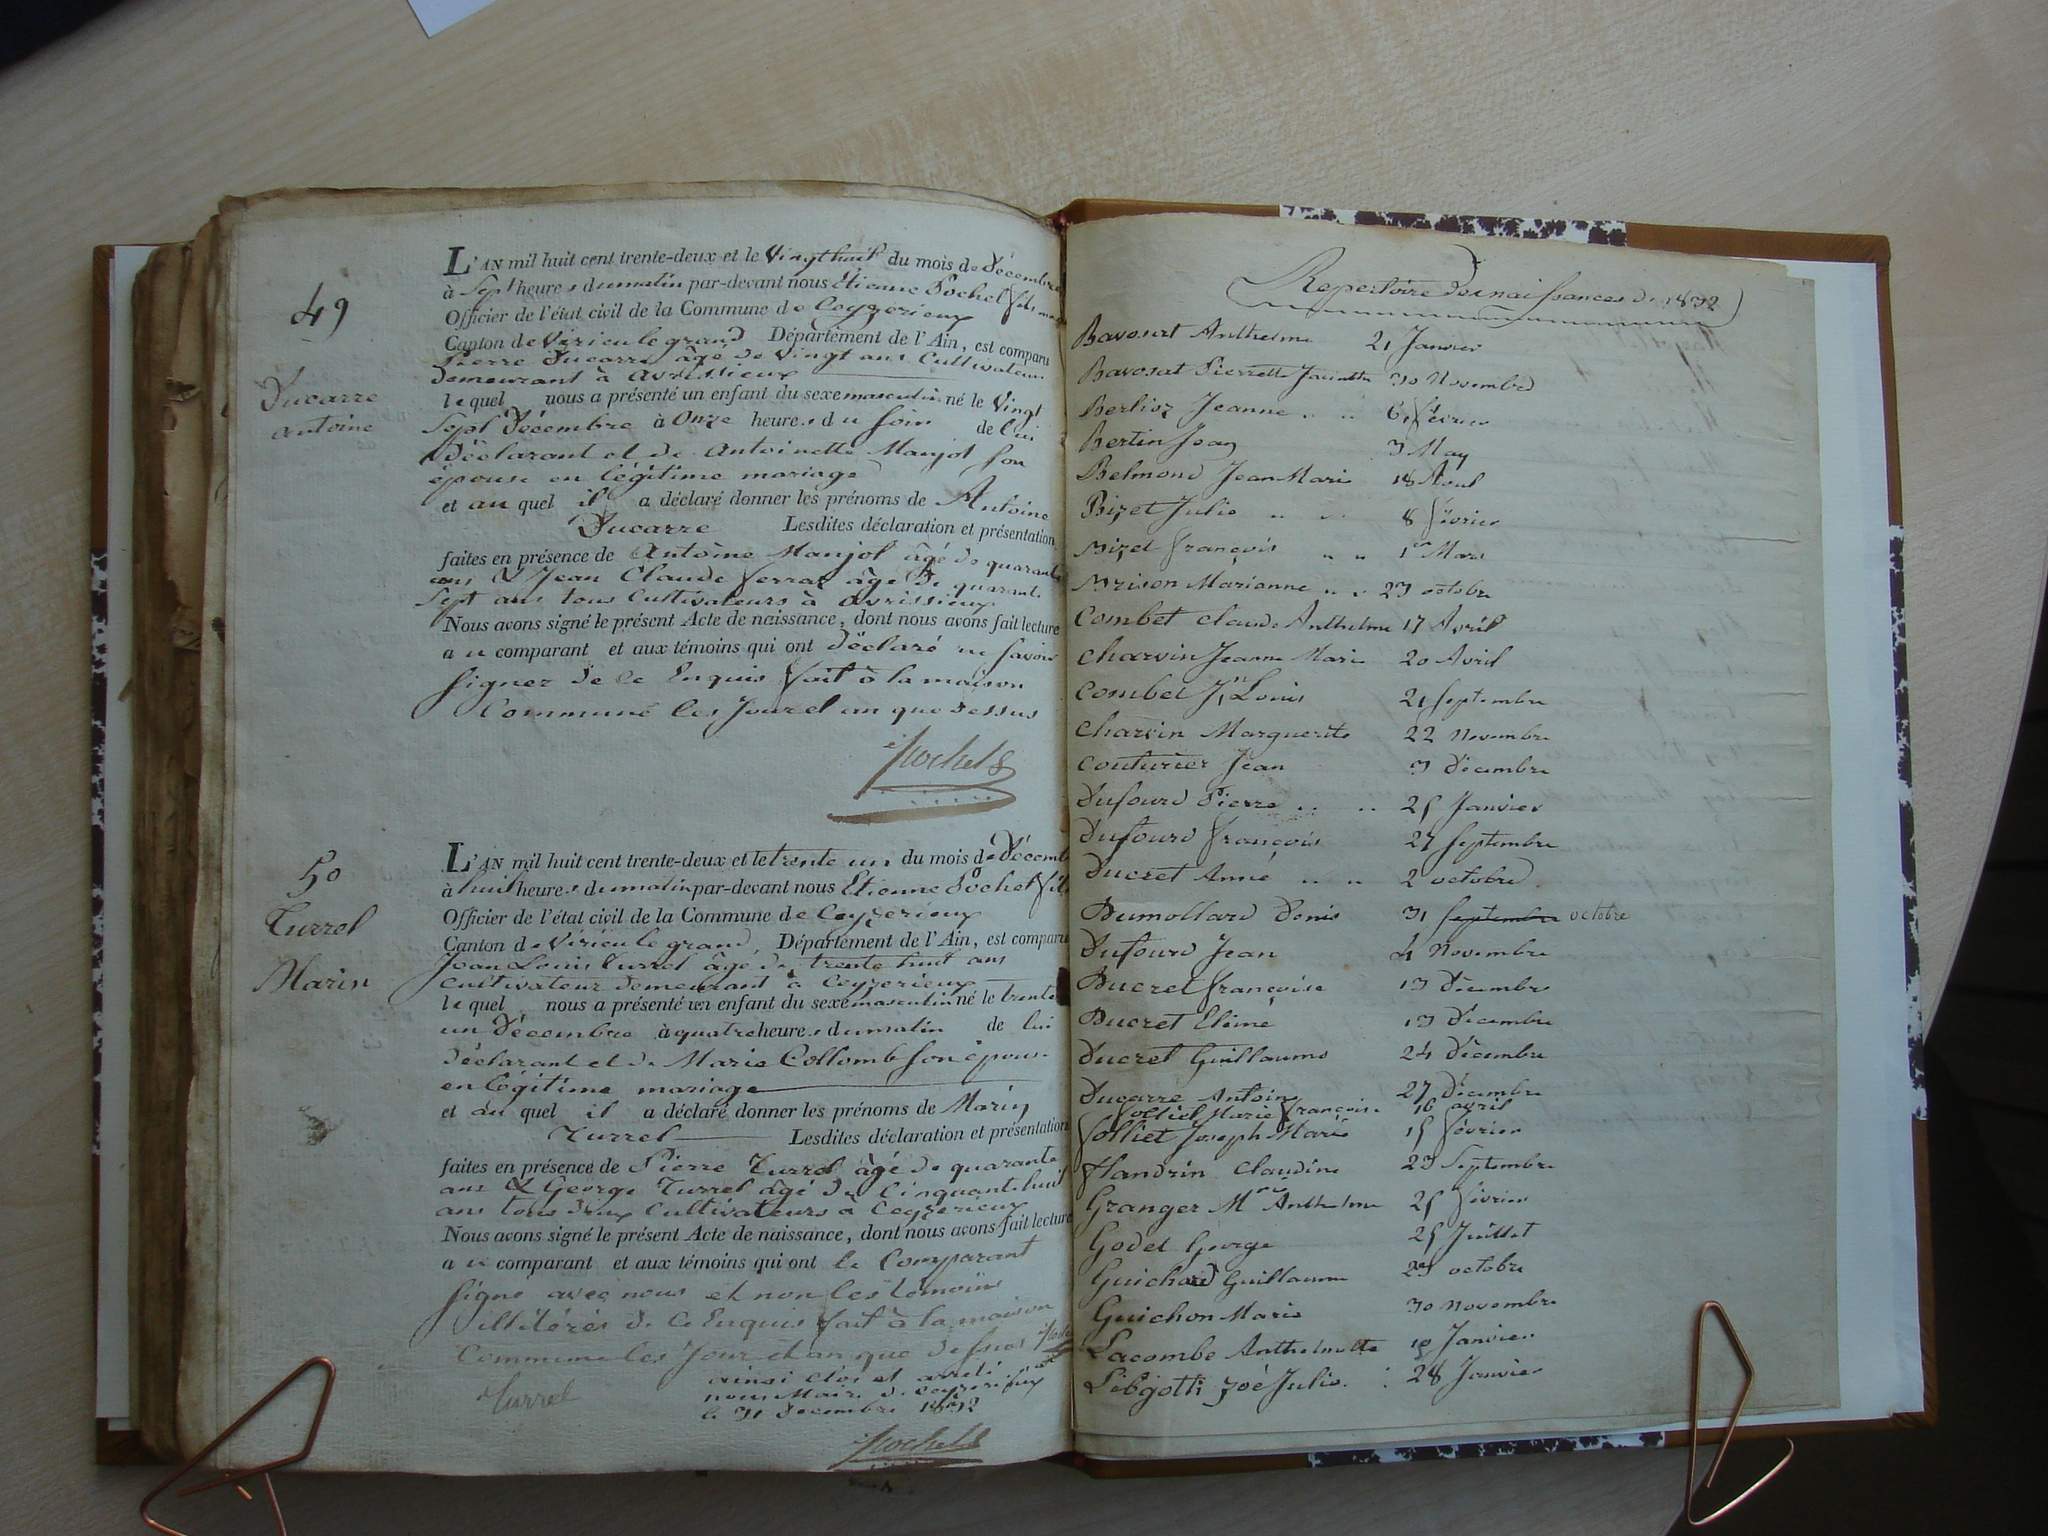 49
Ducarre
antoine
L'AN mil huit cent trente-deux et le Vingt huit du mois de Décembre
à Sept heures du matin par-devant nous Etienne Pochet fils
Officier de l'état civil de la Commune de Ceyzerieux
Canton de Virieu le grand Département de l'Ain, est comparu
Pierre Ducarre âgé de Vingt ans Cultivateur
demeurant à avrissieux
lequel nous a présenté un enfant du sexe masculin né le Vingt
Sept Décembre à Onze heures du soir de lui
Déclarant et de Antoinette Manjot son
épouse en légitime mariage
et au quel il a déclaré donner les prénoms de Antoine
Ducarre Lesdites déclaration et présentation
faites en présence de Antoine Manjot âgé de quarante
ans & Jean Claude ferraz âgé de quarante
Sept ans tous Cultivateurs à avrissieux
Nous avons signé le présent Acte de naissance, dont nous avons fait lecture
au comparant et aux témoins qui ont déclaré ne savoir
signer de ce Enquis fait à la maison
Commune les Jour et an que dessus
Pochet
50
Turrel
Marin
L'AN mil huit cent trente-deux et le trente un du mois de Décemb
à huit heures du matin par-devant nous Etienne Pochet fils
Officier de l'état civil de la Commune de Ceyzerieux
Canton de Virieu le grand, Département de l'Ain, est comparu
Jean Louis Turrel âgé de trente huit ans
cultivateur demeurant à Ceyzerieux
lequel nous a présenté un enfant du sexe masculin né le trente
un Décembre à quatre heures du matin de lui
déclarant et de Marie Collomb son épouse
en légitime mariage
et au quel il a déclaré donner les prénoms de Marin
Turrel Lesdites déclaration et présentation
faites en présence de Pierre Turrel âgé de quarante
ans & George Turrel âgé de Cinquante huit
ans tous deux Cultivateurs a Ceyzerieux
Nous avons signé le présent Acte de naissance, dont nous avons fait lecture
au comparant et aux témoins qui ont le Comparant
signé avec nous et non les témoins
illitérés de ce Enquis fait à la maison
Commune les Jour et an que dessus
Turrel
ainsi clos et arreté
nous Maire de ceyzerieux
le 31 Decembre 1832
Pochet
Repertoire des naissances de 1832
Bavosat Anthelme 21 Janvier
Bavosat Pierrette Jacinthe 30 Novembre
Berlioz Jeanne 6 février
Bertin Jean 3 May
Belmond Jean Marie 18 Aout
Bizet Julie 8 février
Bizet françois 1er Mars
Brison Marianne 23 octobre
Combet Claude Anthelme 17 Avril
Charvin Jeanne Marie 20 Avril
Combet Jn Louis 21 septembre
Charvin Marguerite 22 Novembre
Couturier Jean 3 Décembre
Dufourd Pierre 25 Janvier
Dufourd françois 27 septembre
Ducret Anne 2 octobre
Dumollard Denis 31 septembre octobre
Dufourd Jean 4 Novembre
Ducret françoise 13 Décembre
Ducret Eléme 13 Décembre
Ducret Guillaume 24 Décembre
Ducarre Antoine 27 Décembre
folliet Marie françoise 16 avril
folliet Joseph Marie 15 février
flandrin Claudine 23 Septembre
Granger Mrie Anthelme 25 février
Godet George 25 Juillet
Guichard Guillaume 23 octobre
Guichon Marie 30 Novembre
Lacombe Anthelmette 18 Janvier
Lébgotti Zoé Julie 28 Janvier